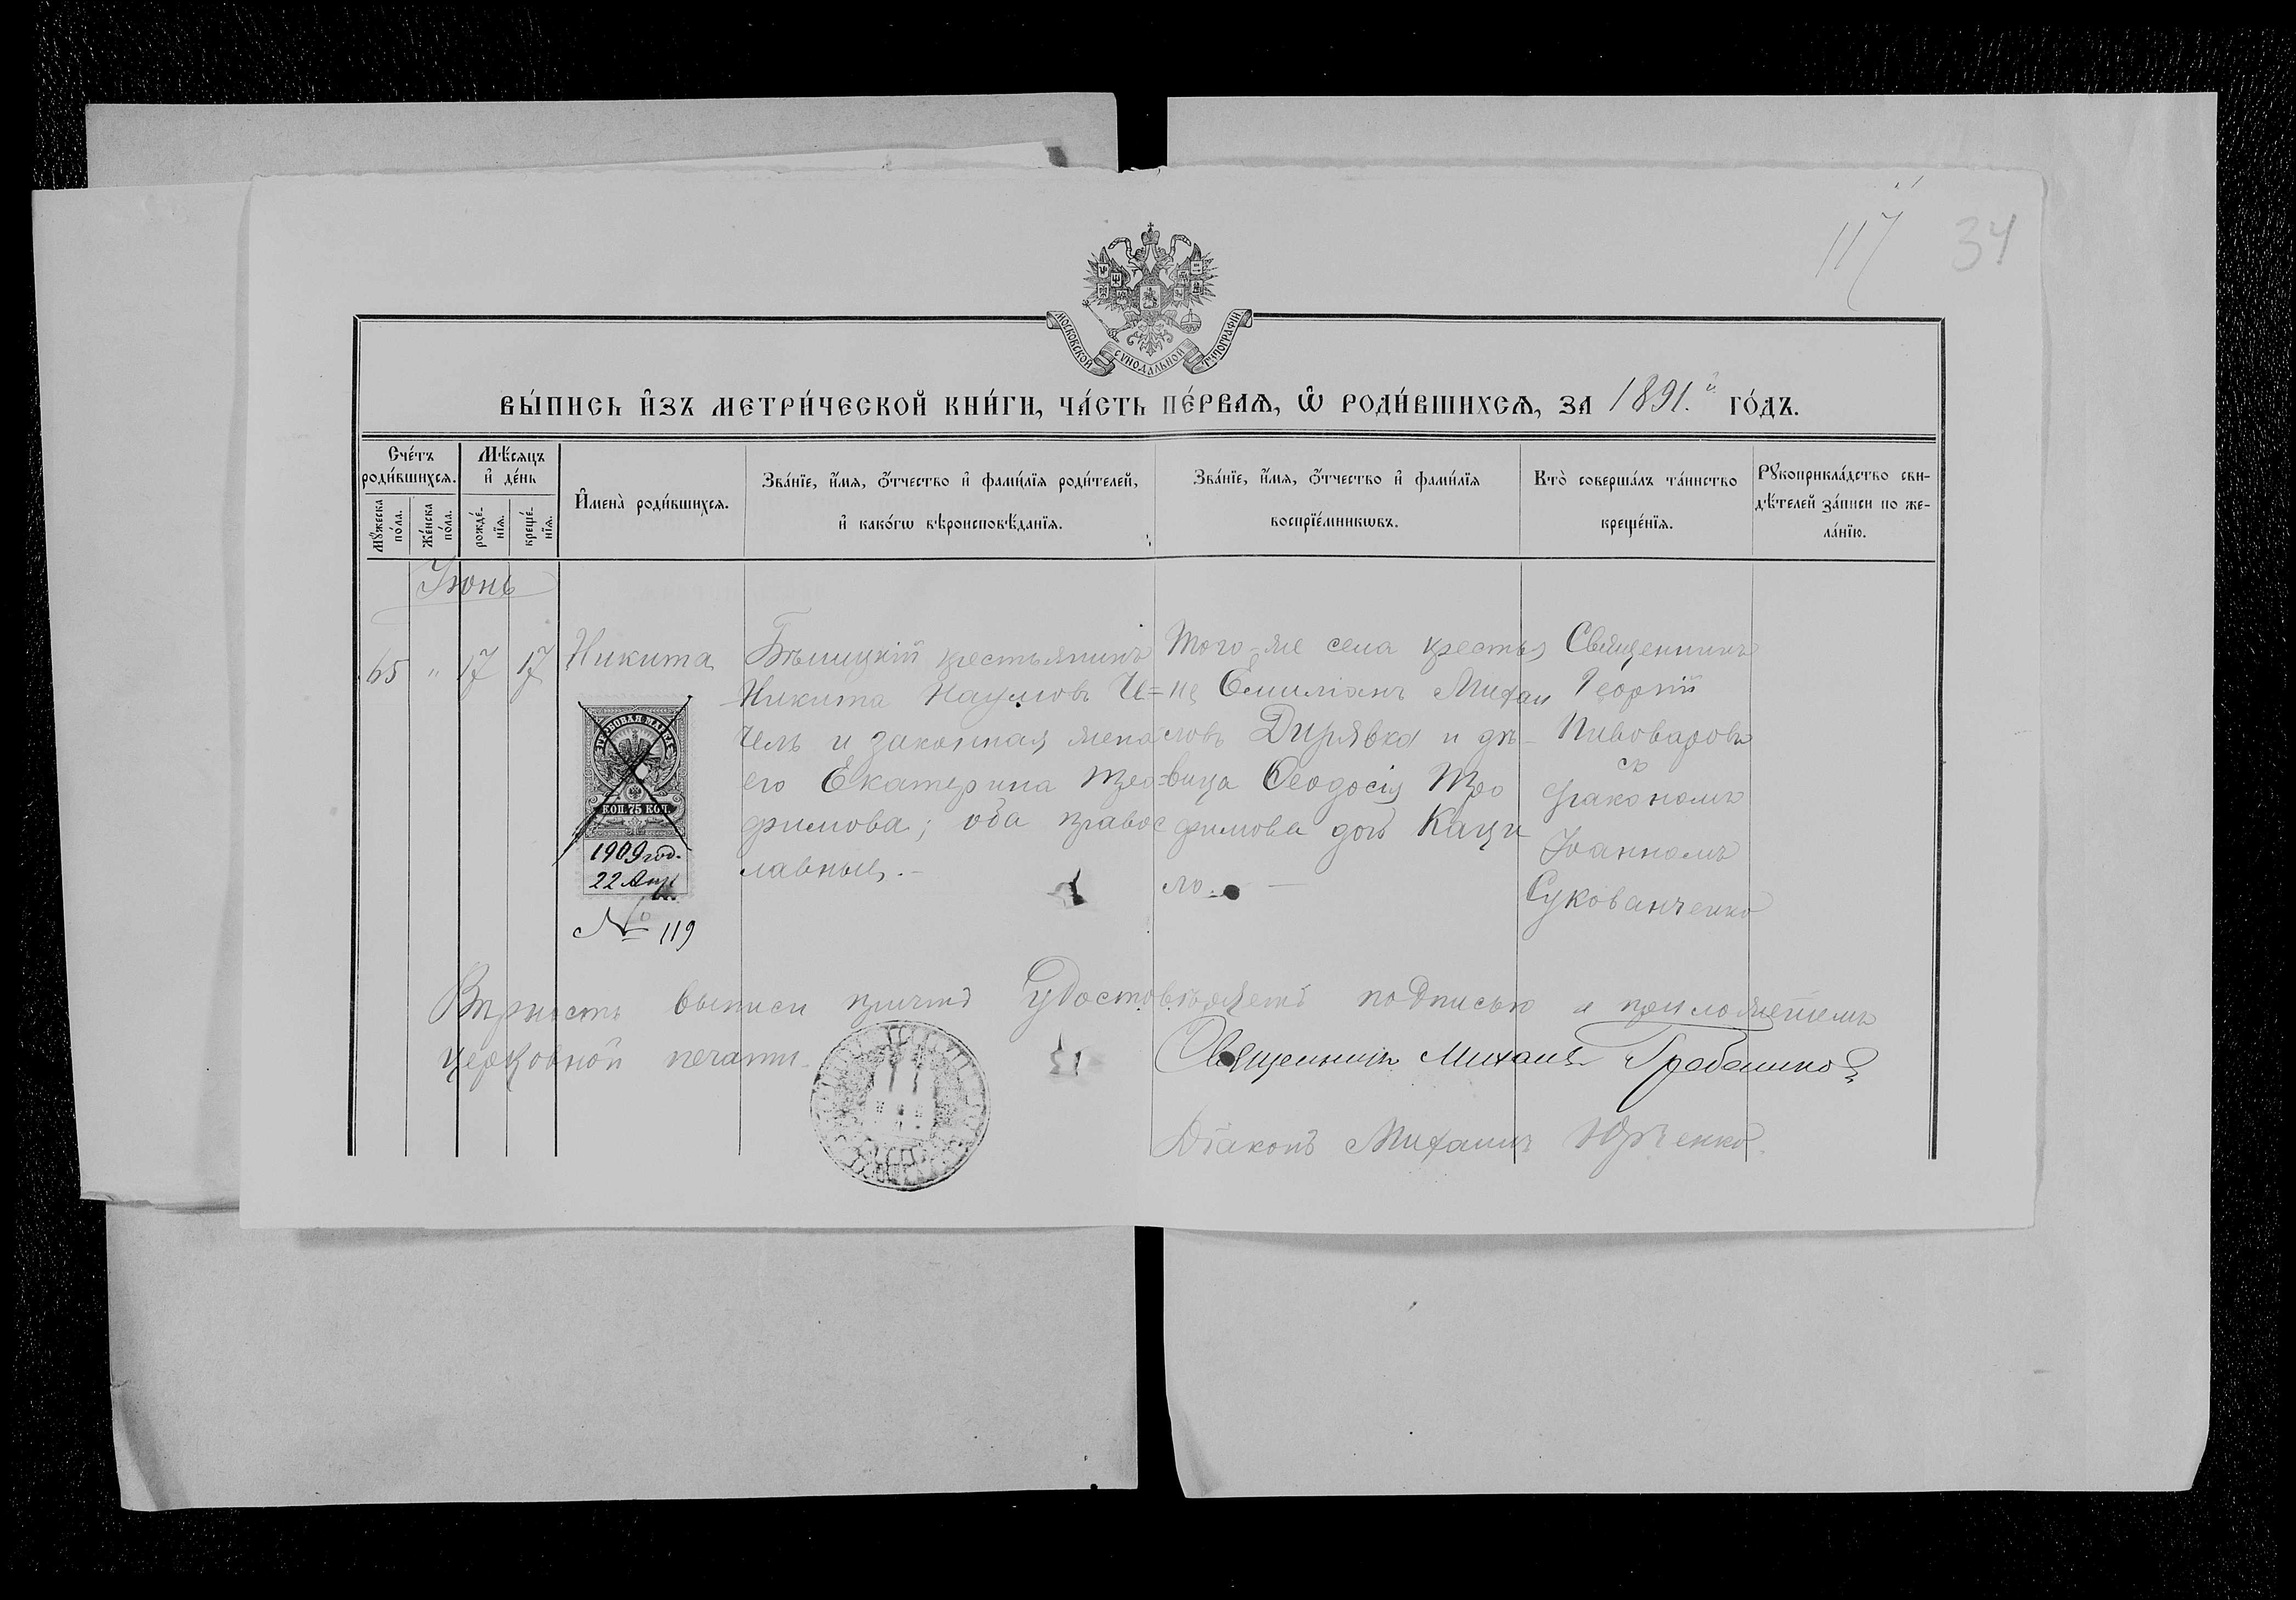 117 34
МОСКОВСКОЙ СѴНОДАЛЬНОЙ ТѴПОГРАФІИ
ВЫ́ПИСЬ И҆ЗЪ МЕТРИ́ЧЕСКОЙ КНИ́ГИ, ЧА́СТЬ ПЕ́РВАѦ, Ѡ҆ РОДИ́ВШИХСѦ, ЗА 1891.й ГО́ДЪ.
Сче́тъ роди́вшихсѧ.
Мѹ́жеска по́ла.
Же́нска по́ла.
Мѣ́сѧцъ и҆ де́нь
рожде́нїѧ.
креще́нїѧ.
И҆мена̀ роди́вшихсѧ.
Зва́нїе, и҆́мѧ, ѻ҆́тчество и҆ фами́лїѧ роди́телей,
и҆ како́гѡ вѣроисповѣ́данїѧ.
Зва́нїе, и҆́мѧ, ѻ҆́тчество и҆ фами́лїѧ
воспрїе́мникѡвъ.
Кто̀ соверша́лъ та́инство
креще́нїѧ.
Рꙋкоприкла́дство сви-
дѣ́телей за́писи по же-
ла́нїю.
Іюнь
65 " 17 17
Никита
ГЕРБОВАЯ МАРКА
КОП. 75 КОП.
1909 год.
22 Апр.
№ 119
крестьянинъ
Никита Наумовъ
и законная жена
его Екатерина Тро-
фимова; оба правос
лавные.-
Того-же села крестья
не Емиліанъ Михаи
ловъ Дирявка и дѣ-
вица Ѳеодосія Тро
фимова дочь Каци
ло. -
Священникъ
Георгій
Пивоваровъ
съ
діакономъ
Іоанномъ
Сукованченко
Вѣрность выписи причтъ удостовѣряетъ подписью и приложеніемъ
церковной печати.
Священникъ Михаилъ
Діаконъ Михаилъ Юрченко.